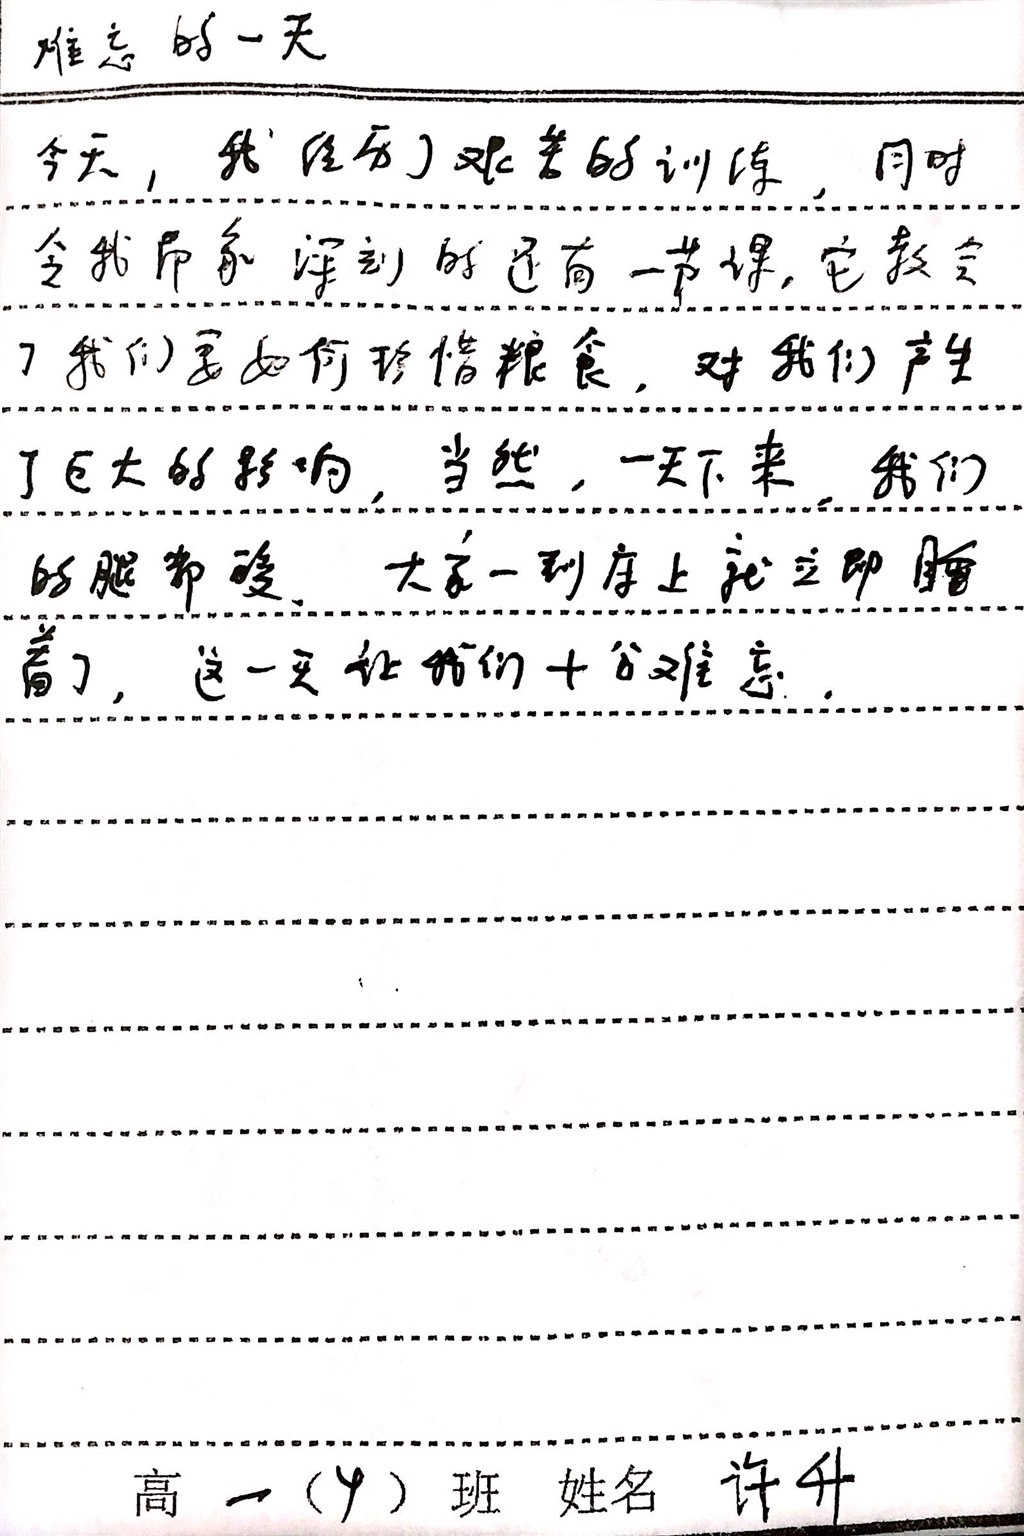 难忘的一天
今天，我经历了艰苦的训练，同时
令我印象深刻的还有一节课，它教会
了我们要如何珍惜粮食，对我们产生
了巨大的影响，当然，一天下来，我们
的腿都酸，大家一到床上就立即睡
着了，这一天让我们十分难忘．
高一（4）班 姓名 许升